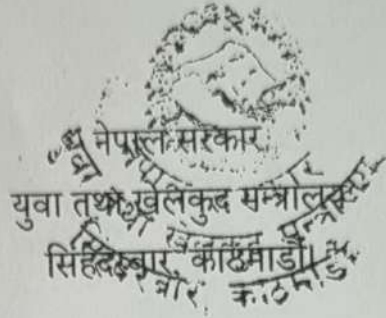 नेपाल सरकार
युवा तथा खेलकुद मन्त्रालय
सिंहदरबार काठमाडौं।